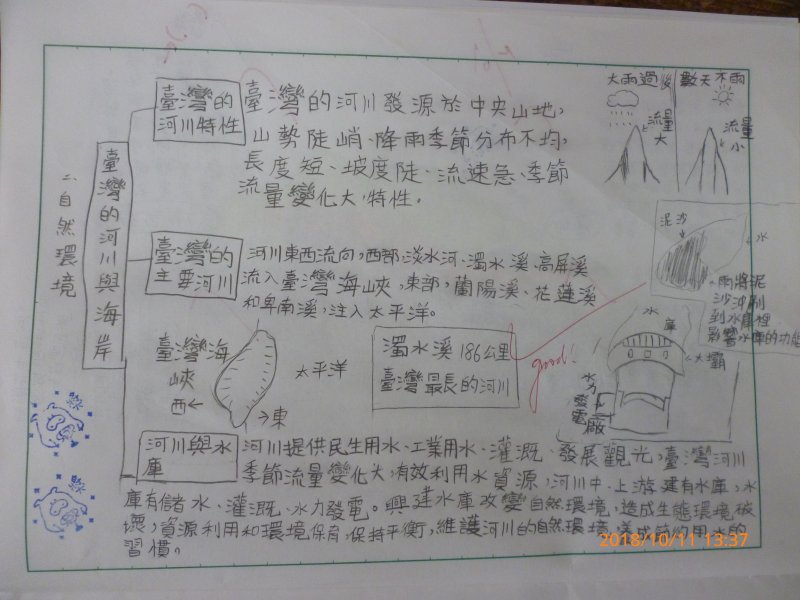 二、自然環境
臺灣的河川與海岸
臺灣的
河川特性
臺灣的河川發源於中央山地,
山勢陡峭、降雨季節分布不均,
長度短、坡度陡、流速急、季節
流量變化大,特性。
大雨過後
流量
大
數天不雨
流量
小
臺灣的
主要河川
河川東西流向,西部,淡水河、濁水溪、高屏溪
流入臺灣海峽,東部,蘭陽溪、花蓮溪
和卑南溪,注入太平洋。
泥沙
水
雨將泥
沙沖刷
到水庫裡
影響水庫的功能
臺灣海
峽
西←
太平洋
→東
濁水溪186公里
臺灣最長的河川
good!
水
庫
大壩
水力發電廠
河川與水
庫
河川提供民生用水、工業用水、灌溉、發展觀光,臺灣河川
季節流量變化大,有效利用水資源,河川中、上游建有水庫,水
庫有儲水、灌溉、水力發電。興建水庫改變自然環境,造成生態環境破
壞,資源利用和環境保育,保持平衡,維護河川的自然環境,養成節約用水的
習慣。
2018/10/11 13:37